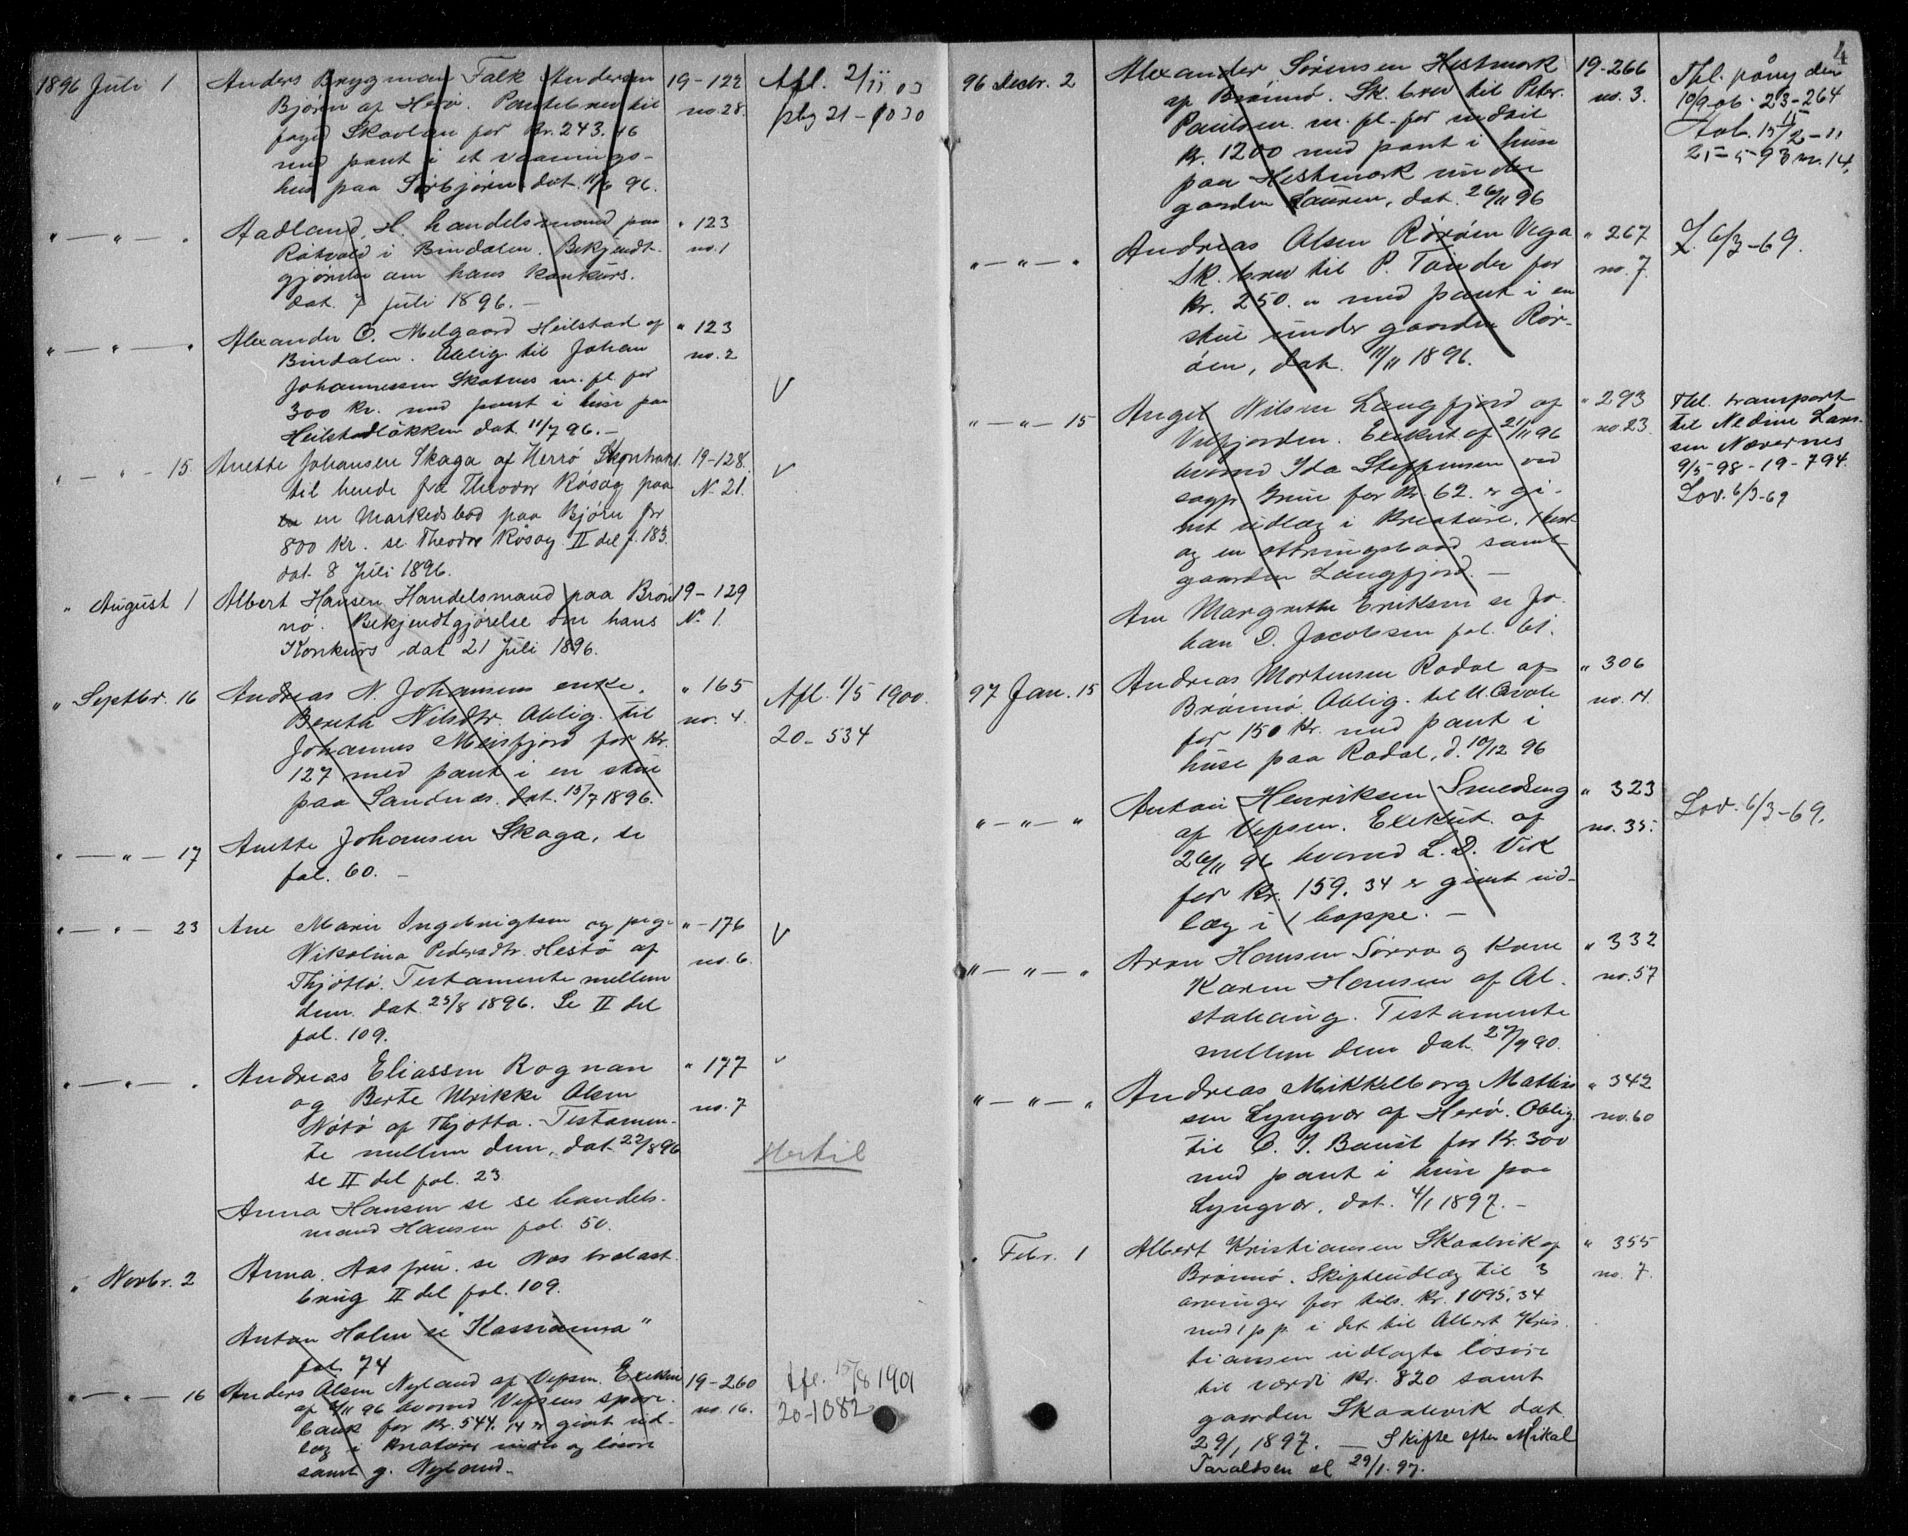 1896 Juli 1 Anders Brygman Falk Andersen 19-122 Afl. 2/11 03
Bjørn af Herø. Pantebrev til no. 28. pbg 21-1030
foged Skavlan for Kr. 243.46
med pant i et vaanings-
hus paa Sørbjørn dat. 96.
" — " — " Aadland, H. handelsmand paa " 123
i Bindalen. Bekjendt- no. 1
gjørelse om hans Konkurs.
dat. 7 Juli 1896. —
" — " — " Alexander O. Melgaard Heilstad af " 123
Bindalen. Oblig. til Johan no. 2
Johannessen Skotnes m. fl. for V
300 Kr. med pant i huse paa
Heilstadløkken dat 11/7 96. —
" — " — 15 Anette Johansen Skaga af Herrø Skjøntrakt. 19-128. V
til hende fra Theodor Røsøy paa N. 21.
en Markedsbod paa Bjørn for
800 Kr. se Theodor Røsøy II del f. 183.
dat. 8 Juli 1896.
" August 1 Albert Hansen Handelsmand paa Brøn 19-129
nø. Bekjendtgjørelse om hans N. 1.
Konkurs dat 21 Juli 1896.
" Septbr. 16 Andreas N. Johansens enke, " 165 Afl. 1/5 1900.
Bereth Nilsdtr. Oblig. til no. 4. 20-534
Johannes Meisfjord for Kr.
127 med pant i en stue
paa Sandnæs. dat. 15/7 1896.
" — " — 17 Anette Johansen Skaga, se
fol. 60. —
" — " — 23 Ane Marie Ingebrigtsen og pige " -176 V
Nikolina Pedersdtr. Hestø af no. 6.
Thjøttø. Testamente mellem
dem. dat. 25/8 1896. Se II del
fol. 109.
" — " — " Andreas Eliassen Rognan " 177 v
og Berte Ulrikke Olsen no. 7
af Thjøtta. Testamen-
te mellem dem, dat. 22/8 96
se II del fol. 23. Hertil
Anna Hansen se se handels-
mand Hansen fol. 50.
" Novbr. 2 Anna. Aas fru. se Aas
brug II del fol. 109.
Anton Holm se "Kassianna"
fol. 74
" — " — 16 Anders Olsen Nyland af Vefsen. Exekut 19-260 Afl. 15/8 1901
af 9/11 96 hvorved Vefsens spare- no. 16. 20-1082
bank for Kr. 544.14 er givet ud-
læg i kreaturer og løsøre
samt g. Nyland. —
4
96 Decbr. 2 Alexander Sørensen Hestmark 19-266 Thl. påny den
af Brønnø. Sk. brev til Petr. no. 3. 10/9-06. 23-264
Paulsen m. fl. for indtil
Kr. 1200 med pant i huse
paa Hestmark under
gaarden dat. 26/11 96
" — " — " Andreas Olsen Rørøen Vega " 267 L. 6/3-69.
Sk. brev til P. Tønder for no. 7.
Kr. 250. " med pant i en
stue under gaarden Rør-
øen, dat. 11/11 1896.
" — " — 15 Angel Nilsen Langfjord af " 293 Thl. transport
Velfjorden. Exekut af 21/11 96 no. 23. til Nedine Lars-
hvorved Ida Steffensen ved sen Nævernes
sagf. for Kr. 62. er gi- 9/5-98-19-794.
vet udlæg i kreaturer, 1 hest Lov. 6/3-69
og en ottringsbaad samt
gaarden Langfjord. —
Ane Margrethe Eriksen se Jo-
han D. Jacobsen fol. 61.
97 Jan. 15 Andreas Mortensen Rodal af " 306
Brønnø. Oblig. til U. Qvale no. 14.
for 150 Kr. med pant i
huse paa Rodal, d. 10/12 96
" — " — " Anton Henriksen Smedseng " 323 Lov. 6/3-69.
af Vefsen. Exekut. af no. 35.
26/11 96 hvorved L. D. Vik
for Kr. 159.34 er givet ud-
læg i 1 hoppe. —
" — " — " Aron Hansen Sørra og Kone " 332
Karen Hansen af Al- no. 57
stahaug. Testamente
mellem dem dat. 27/9 90.
" — " — " Andreas Mikkelborg Mathis " 342
sen Lyngvær af Herø. Oblig. no. 60
til C. J. Banst for Kr. 300
med pant i huse paa
Lyngvær, dat. 4/1 1897. —
" Febr. 1 Albert Kristiansen Skaalvik af " 355
Brønnø. Skifteudlæg til 3 no. 7.
arvinger for tils. Kr. 1095.34
med 1 p. p. i det til Albert Kris-
tiansen udlagte løsøre
til værdi Kr. 820 samt
gaarden Skaalvik dat.
29/1 1897. — Skifte efter Mikal
Taraldsen sl. 29/1. 97.